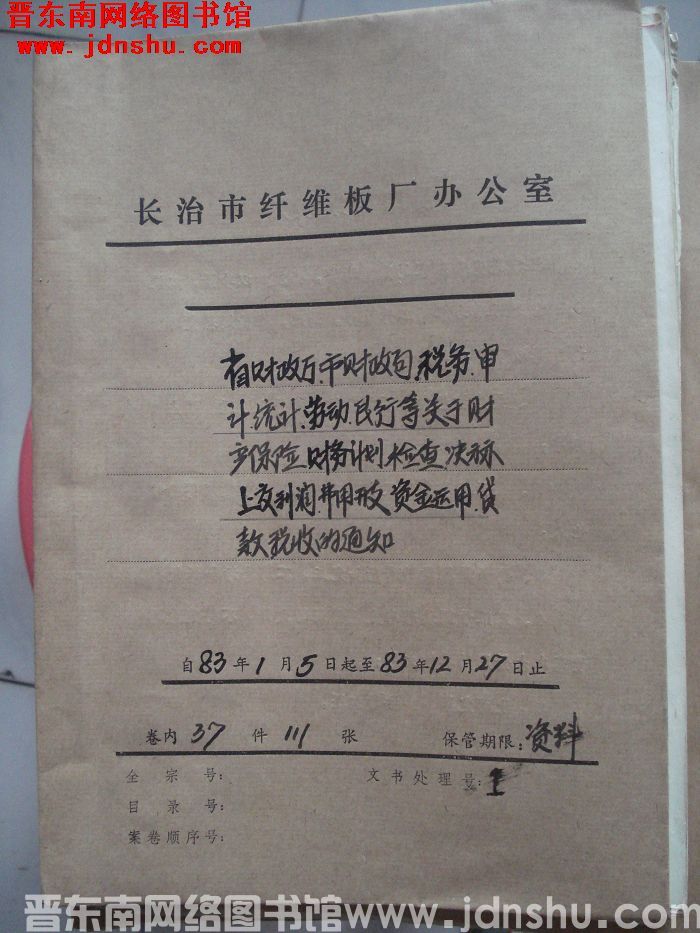 晋东南网络图书馆
www.jdnshu.com
长治市纤维板厂办公室
省财政厅、市财政局、税务、审
计、统计、劳动、民行等关于财
产保险财务计划检查决标
上交利润费用开支资金运用、贷
款税收的通知
自83年1月5日起至83年12月27日止
卷内37件111张 保管期限：资料
全宗号： 文书处理号：1
目录号：
案卷顺序号：
晋东南网络图书馆 www.jdnshu.com